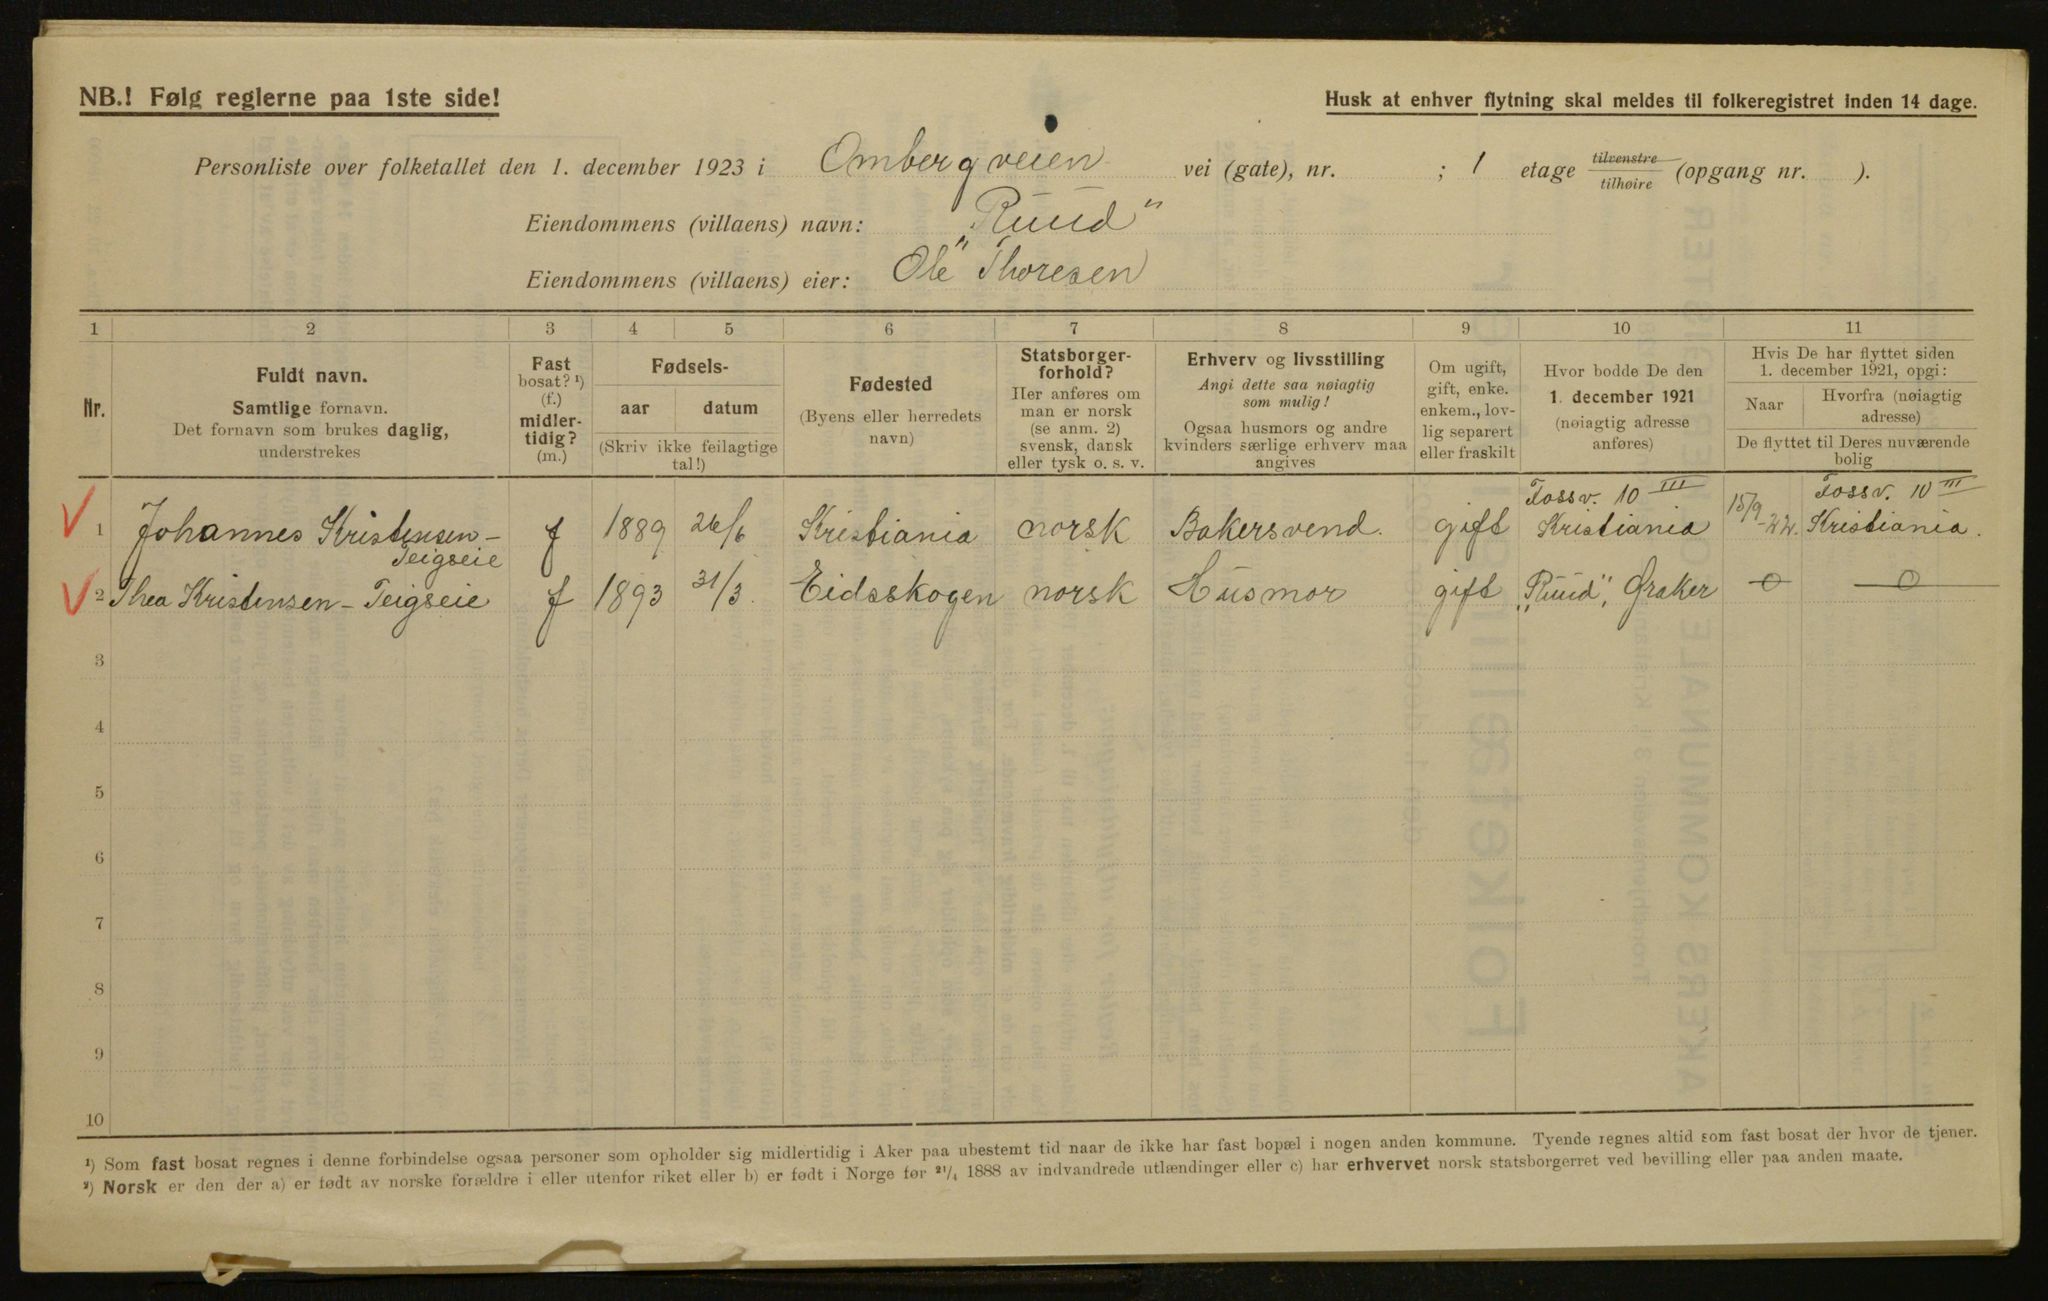 NB.! Følg reglerne paa 1ste side!
Husk at enhver flytning skal meldes til folkeregistret inden 14 dage.
Personliste over folketallet den 1. december 1923 i Ombergveien vei (gate), nr. ; 1 etage tilvenstre/tilhøire (opgang nr. ).
Eiendommens (villaens) navn: „Ruud"
Eiendommens (villaens) eier: Ole Thoresen
1 2 3 4 5 6 7 8 9 10 11
Nr.
Fuldt navn.
Samtlige fornavn.
Det fornavn som brukes daglig,
understrekes
Fast
bosat? ¹)
(f.)
midler-
tidig?
(m.)
Fødsels-
aar datum
(Skriv ikke feilagtige
tal!)
Fødested
(Byens eller herredets
navn)
Statsborger-
forhold?
Her anføres om
man er norsk
(se anm. 2)
svensk, dansk
eller tysk o. s. v.
Erhverv og livsstilling
Angi dette saa nøiagtig
som mulig!
Ogsaa husmors og andre
kvinders særlige erhverv maa
angives
Om ugift,
gift, enke.
enkem., lov-
lig separert
eller fraskilt
Hvor bodde De den
1. december 1921
(nøiagtig adresse
anføres)
Hvis De har flyttet siden
1. december 1921, opgi:
Naar
Hvorfra (nøiagtig
adresse)
De flyttet til Deres nuværende
bolig
1 Johannes Kristensen-Teigseie f 1889 26/6 Kristiania norsk Bakersvend. gift Fossv. 10 III Kristiania 15/9-22. Fossv. 10 III Kristiania.
2 Thea Kristensen-Teigseie f 1893 31/3. Eidsskogen norsk Husmor gift „Ruud", Øraker — 0 — — 0 —
3
4
5
6
7
8
9
10
¹) Som fast bosat regnes i denne forbindelse ogsaa personer som opholder sig midlertidig i Aker paa ubestemt tid naar de ikke har fast bopæl i nogen anden kommune. Tyende regnes altid som fast bosat der hvor de tjener.
²) Norsk er den der a) er født av norske forældre i eller utenfor riket eller b) er født i Norge før ²¹/₄ 1888 av indvandrede utlændinger eller c) har erhvervet norsk statsborgerret ved bevilling eller paa anden maate.